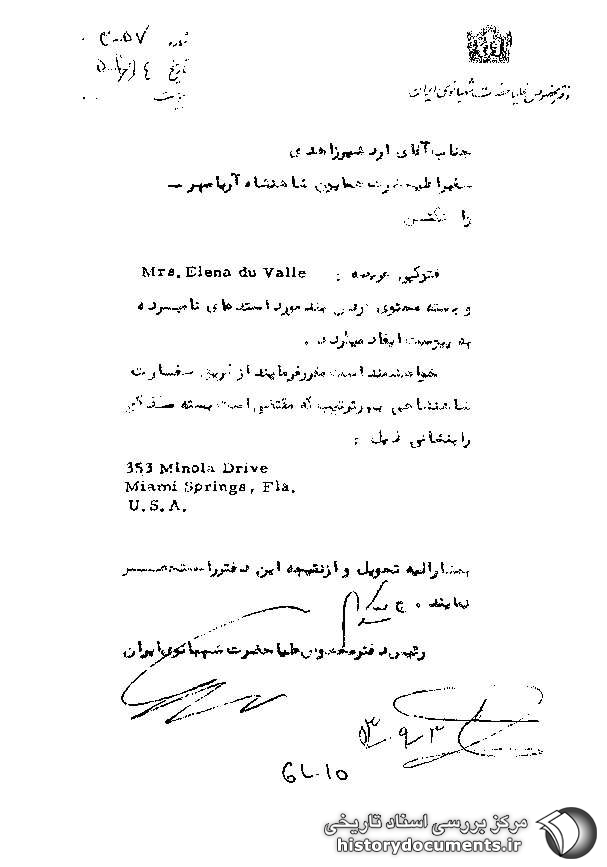 شماره ۳۰۵۷
تاریخ
پیوست
دفتر مخصوص علیاحضرت شهبانوی ایران
جناب آقای اردشیر زاهدی
سفیر اعلیحضرت همایون شاهنشاه آریامهر ــ
وا شنگتن
فتوکپی عریضه : Mrs. Elena du Valle
و بسته محتوی مورد استدعای نامبرده
به پیوست ایفاد میگردد .
خواهشمند است مقررفرمایند از طریق سفارت
شاهنشاهی بهرترتیب که مقتضی است بسته
را بنشانی ذیل :
353 Minola Drive
Miami Springs, Fla.
U.S.A.
بمشارالیه تحویل و ازنتیجه این دفتررا مستحضر
نمایند .
رئیس دفترمخصوص علیا حضرت شهبانوی ایران
۵۳٫۹٫۳
GL.10
مرکز بررسی اسناد تاریخی
historydocuments.ir